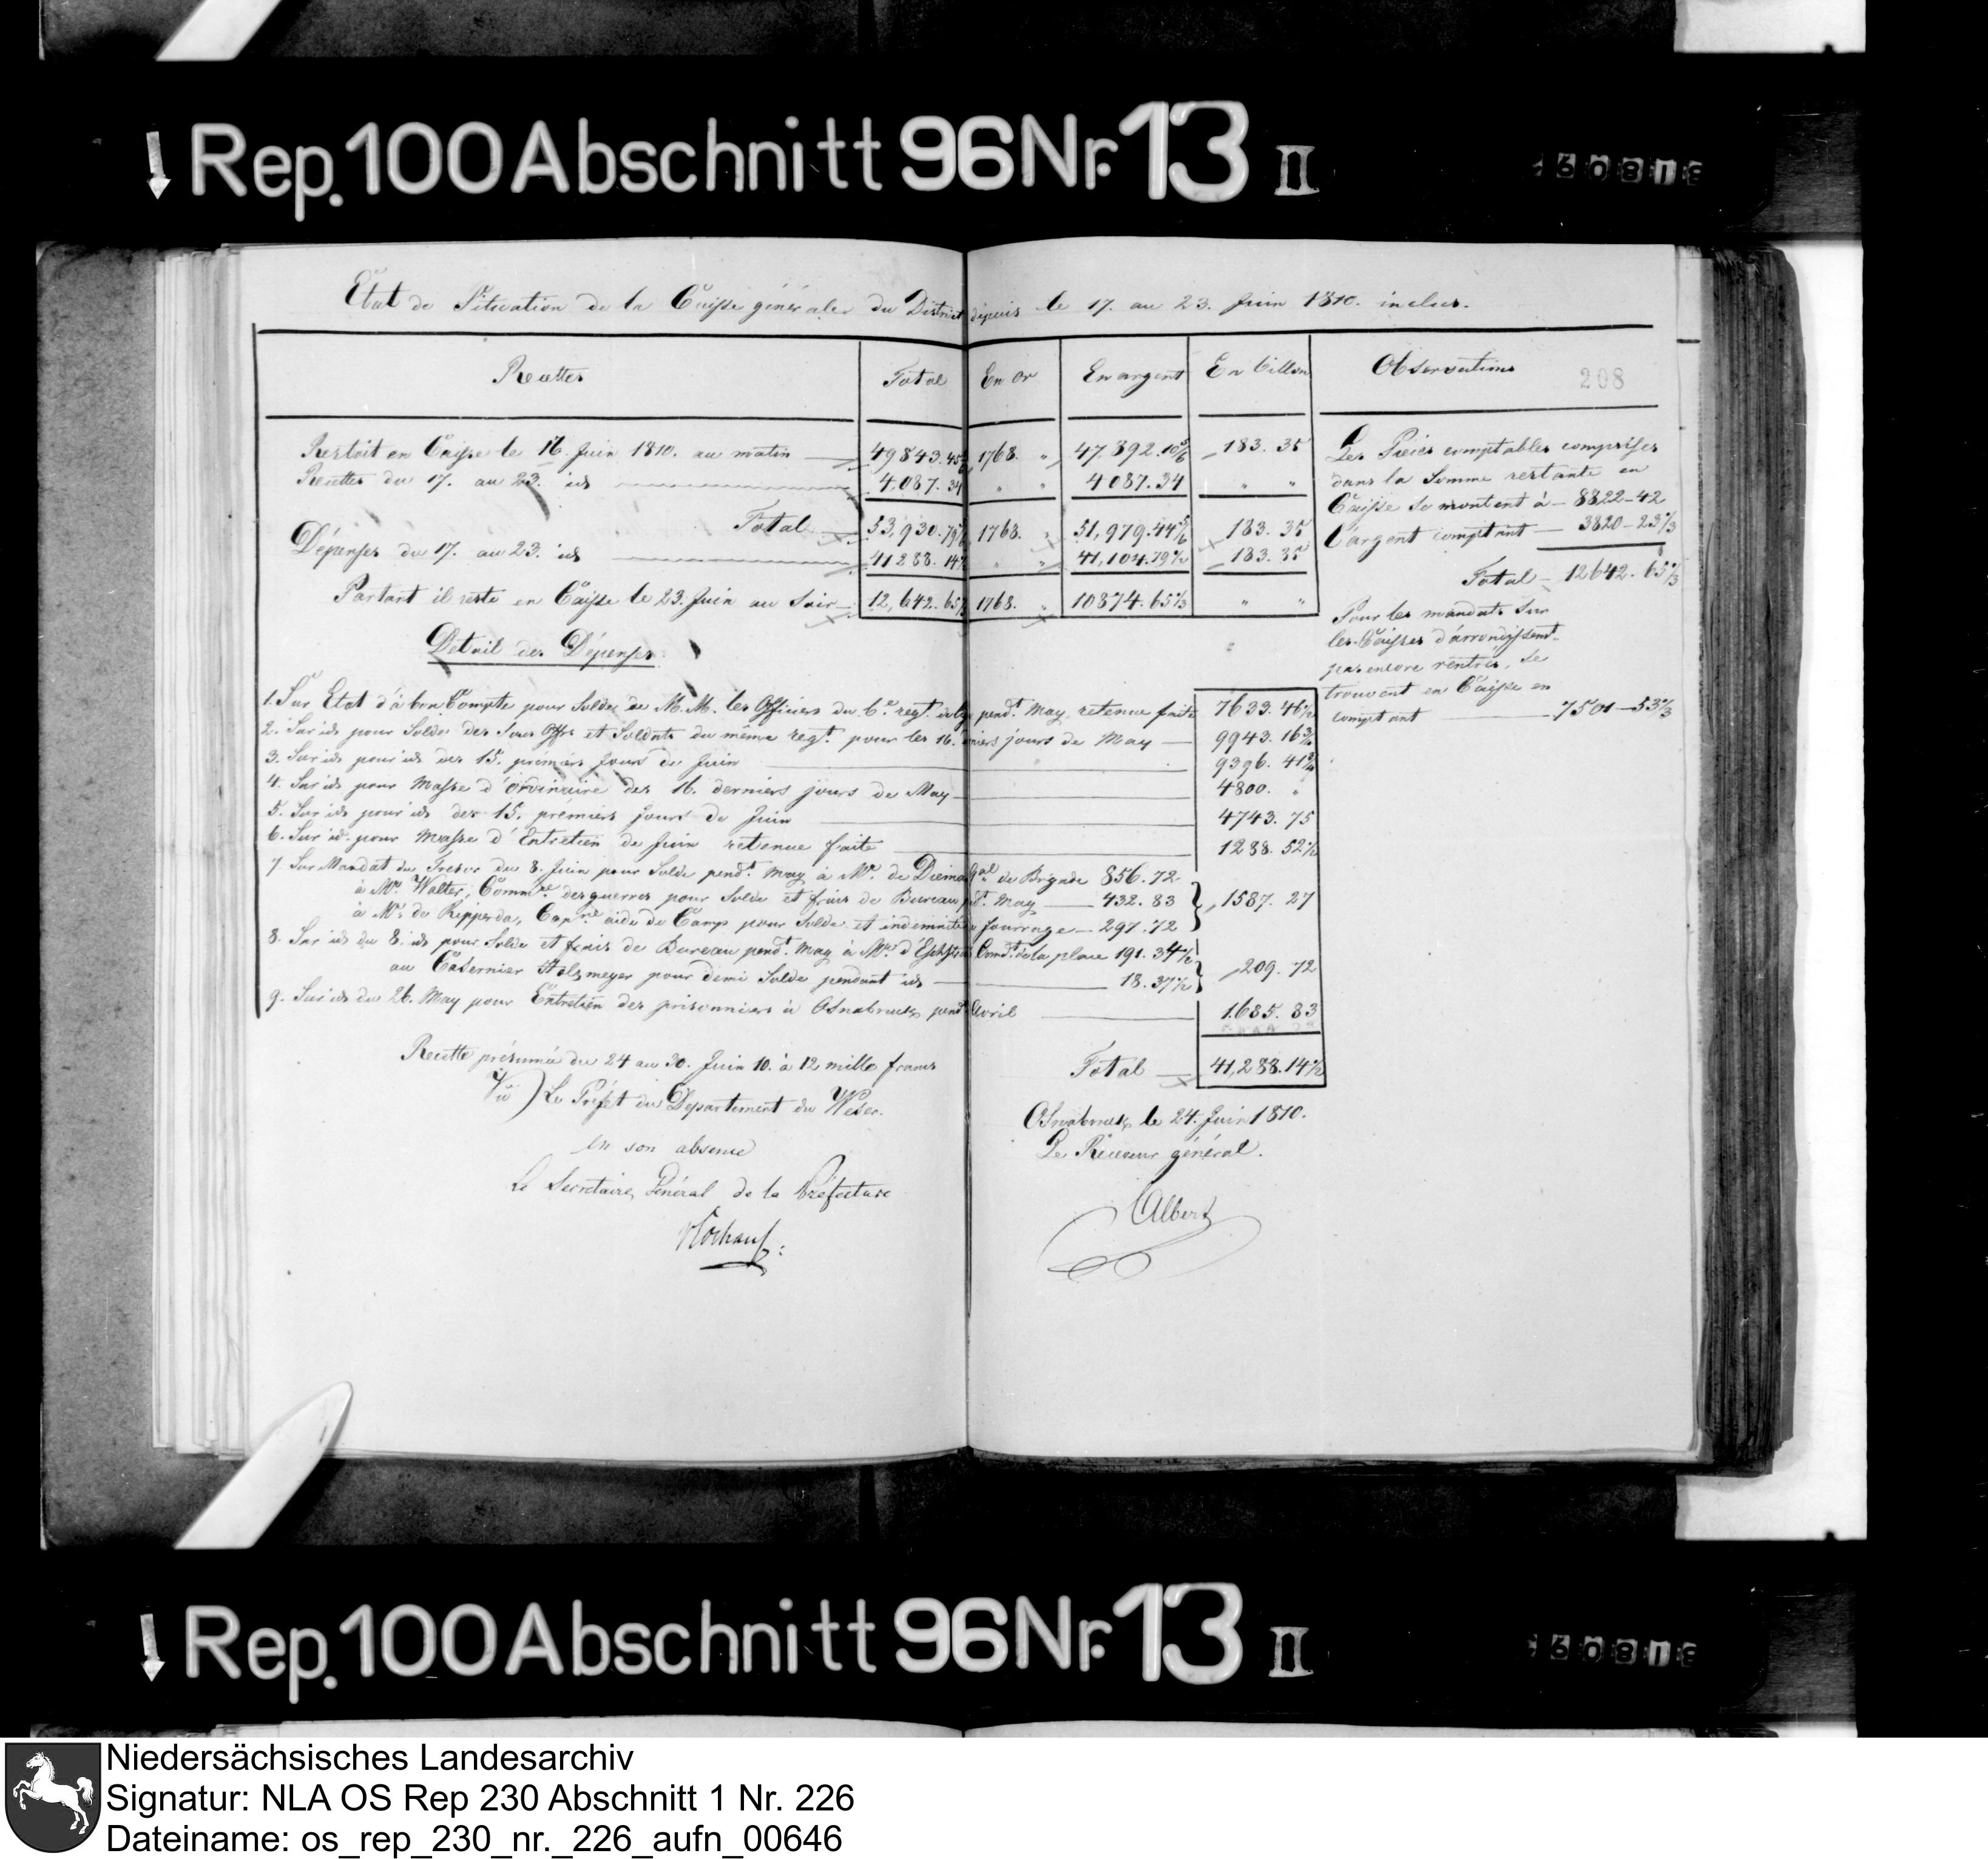 Rep. 100 Abschnitt 96 Nr. 13 II
Etat de Situation de la Caisse générale du District depuis le 17. au 23. Juin 1810. inclus.
Recettes Total En or En argent En billon Observations 208
Restoit en Caisse le 16. Juin 1810. au matin 49843. 1768. " 47,892.10 5/6 183. 35
Recettes du 17. au 23. id 4,087. 34 " " 4087.34 " "
Total 53,930. 1768. " 51,979.44 5/6 183. 35
Dépenses du 17. au 23. id 41288. 14 " " 41,104.79 1/2 183. 35
Partant il reste en Caisse le 23. Juin au Soir 12,642. 65 1768. " 10874.65 1/3 " "
Les Pièces comptables comprises
dans la Somme restante en
Caisse se montent à 8822-42
L'argent comptant 3820-23 1/3
Total 12642. 65 1/3
Pour les mandats sur
les Caisses d'arrondissemt.
pas encore rentrés, se
trouvent en Caisse en
comptant 7501-53 2/3
Detail des Dépenses
1. Sur Etat d'à bon Compte pour Solde de M.M. les Officiers du 6.e regt. pendt. May, retenue faite 7633. 46 1/2
2. Sur id pour Solde des Sous Offrs et Soldats du même regt. pour les 16. jours de May 9943. 16
3. Sur id pour id des 15. premiers jours de Juin 9396. 41
4. Sur id pour Masse d'ordinaire des 16. derniers jours de May 4800. "
5. Sur id pour id des 15. prémiers jours de Juin 4743. 75
6. Sur id. pour Masse d'Entretien de Juin retenue faite 1288. 52 1/2
7. Sur Mandat du Tresor du 8. Juin pour Solde pendt. May à Mr. de Diemar Gal de Brigade 856. 72
à Mr. Walter, Commre des guerres pour Solde et frais de Bureau pdt. May 432. 83 1587. 27
à Mr. de Ripperda, Capne aide de Camp pour Solde et indemnité fourrage 297. 72
8. Sur id du 8. id pour Solde et frais de Bureau pendt. May à Mr. Comdt. de la place 191. 34 1/2
au Casernier Holzmeyer pour demi Solde pendant id 18. 37 1/2 209. 72
9. Sur id du 26. May pour Entretien des prisonniers à Osnabruck pendt Avril 1685. 83
Total 41,288.14 1/2
Recette présumée du 24 au 30. Juin 10. à 12 mille francs
Vu) Le Préfet du Departement du Weser.
en son absence
Le Secretaire Général de la Préfecture
Osnabruck le 24. Juin 1810.
Le Receveur général.
Albers
Rep. 100 Abschnitt 96 Nr. 13 II
Niedersächsisches Landesarchiv
Signatur: NLA OS Rep 230 Abschnitt 1 Nr. 226
Dateiname: os_rep_230_nr._226_aufn_00646